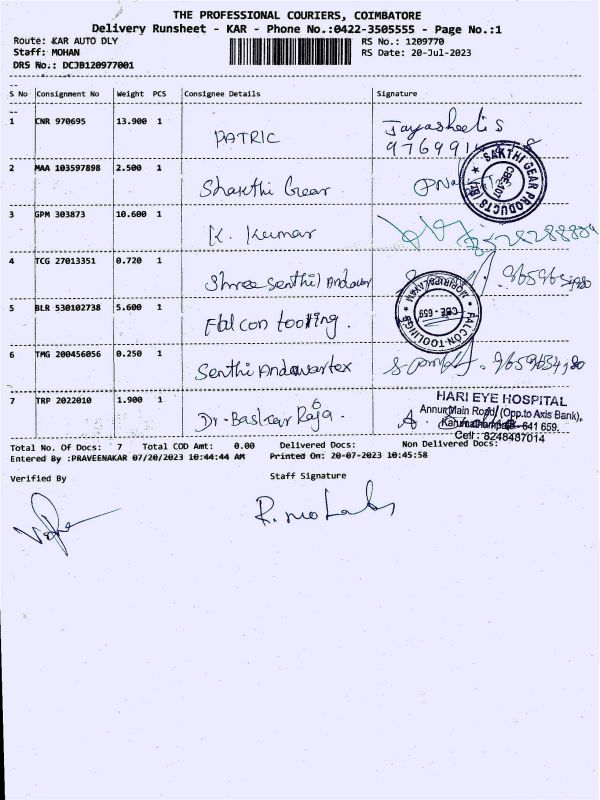 THE PROFESSIONAL COURIERS, COIMBATORE
Delivery Runsheet - KAR - Phone No.:0422-3505555 - Page No.:1
Route: KAR AUTO DLY RS No.: 1209770
Staff: MOHAN RS Date: 20-Jul-2023
DRS No.: DCJB120977001
S No Consignment No Weight PCS Consignee Details Signature
1 CNR 970695 13.900 1 PATRIC Jayasheel S
2 MAA 103597898 2.500 1 Shakthi Gear
SAKTHI GEAR PRODUCTS
CBE-107
3 GPM 303873 10.600 1 K. Kumar
4 TCG 27013351 0.720 1 Shree Senthil Andavar
5 BLR 530102738 5.600 1 Falcon tooling.
FALCON-TOOLINGS
CBE - 659
6 TMG 200456056 0.250 1 Senthi Andavartex
7 TRP 2022010 1.900 1 Dr-Baskar Raja.
HARI EYE HOSPITAL
Annur Main Road, (Opp.to Axis Bank),
641 659.
Cell : 8248487014
Total No. Of Docs: 7 Total COD Amt: 0.00 Delivered Docs: Non Delivered Docs:
Entered By :PRAVEENAKAR 07/20/2023 10:44:44 AM Printed On: 20-07-2023 10:45:58
Verified By Staff Signature